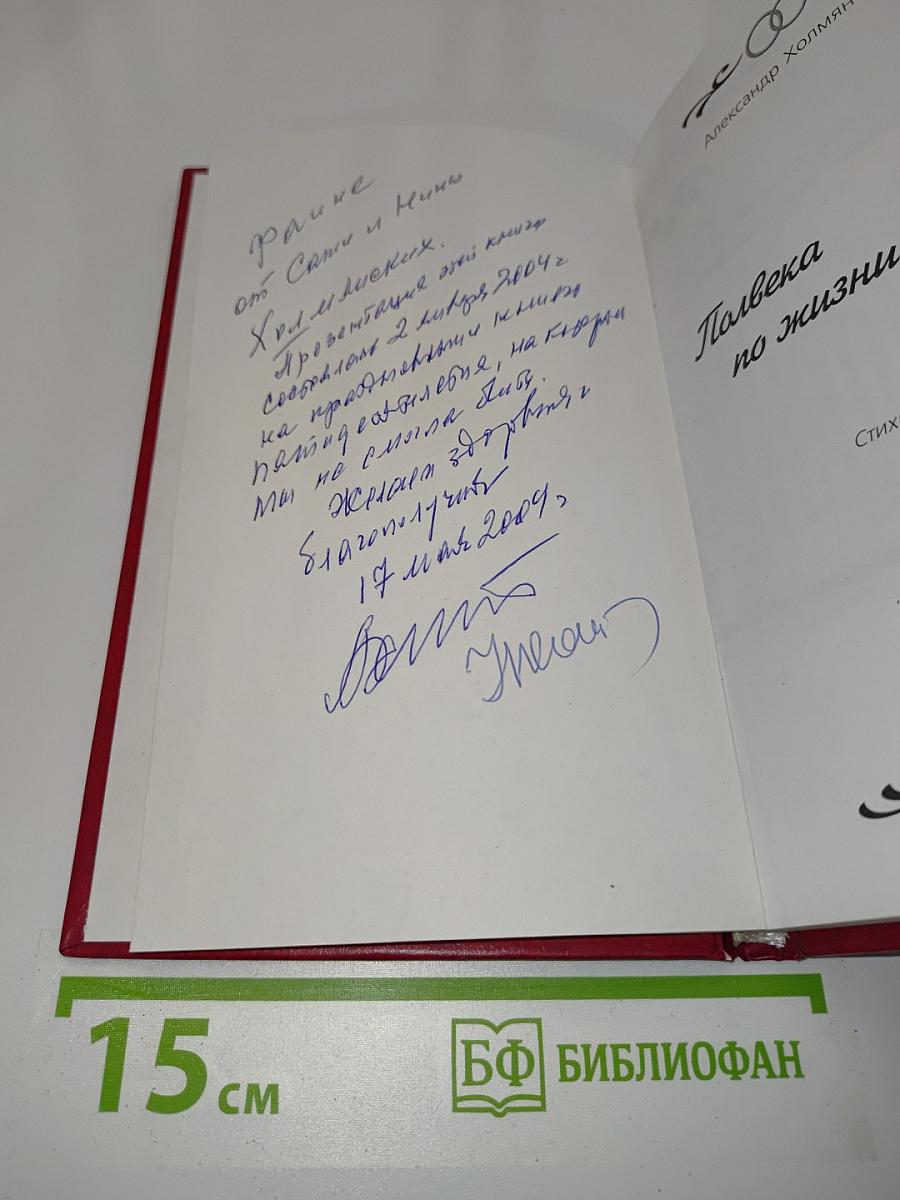 Фаине
от Саши и Нины
Холмянских.
Презентация этой книги
состоялась 2 января 2004 г
на праздновании нашего
пятидесятилетия, на котором
ты не смогла быть.
Желаем здоровья и
благополучия
17 мая 2004 г
Александр Холмян
Полвека
по жизни
Стихи
15 см
БФ БИБЛИОФАН